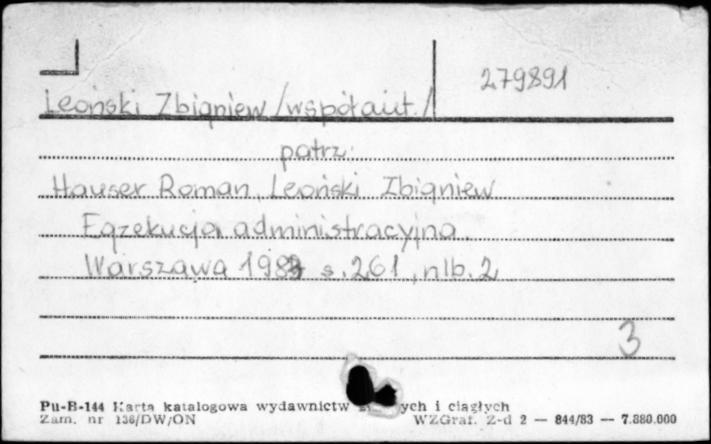 279891
Leoński Zbigniew /współaut./
patrz:
Hauser Roman, Leoński Zbigniew
Egzekucja administracyjna.
Warszawa s. 261, nlb. 2
3
Pu-B-144 Karta katalogowa wydawnictw i ciągłych
Zam. nr 136/DW/ON WZGraf. Z-d 2 — 844/83 — 7.880.000